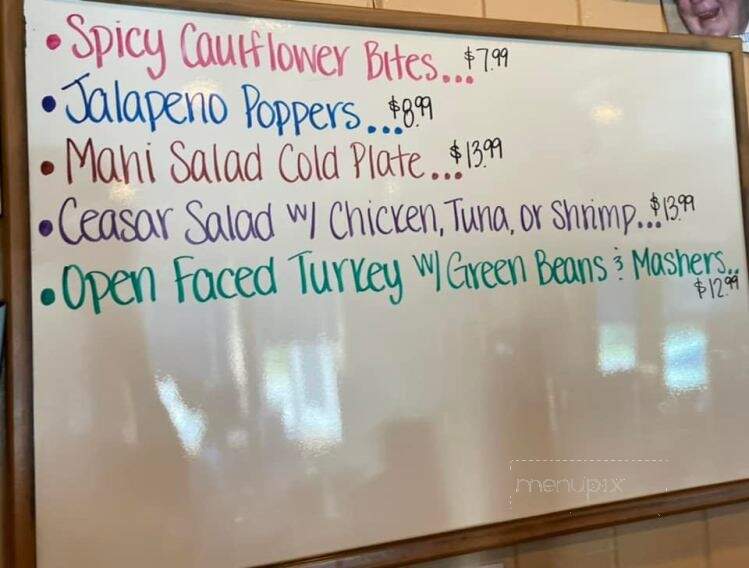 • Spicy Caulflower Bites...$7.99
• Jalapeno Poppers...$8.99
• Mahi Salad Cold Plate...$13.99
• Ceasar Salad w/ Chicken, Tuna, or Shrimp...$13.99
• Open Faced Turkey w/ Green Beans & Mashers...
$12.99
menupix